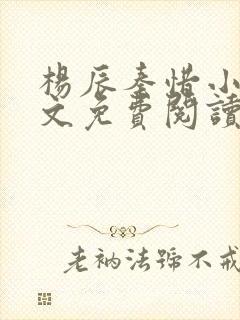 楊辰秦惜小
文免費閱讀
老衲法號不戒